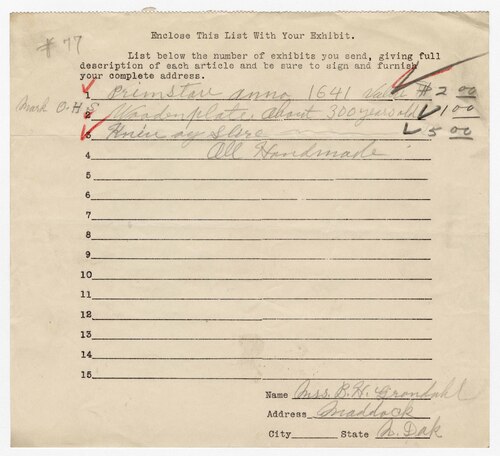 # 77
Enclose This List With Your Exhibit.
List below the number of exhibits you send, giving full
description of each article and be sure to sign and furnish
your complete address.
1 Primstav anno, 1641 Value # 2 00
Mark O-H-S
2 Woodenplate, About 300 years old 1 00
3 5 00
4 All Handmade
5
6
7
8
9
10
11
12
13
14
15
Name Mrs. B. H. Grondahl
Address Maddock
City State N. Dak